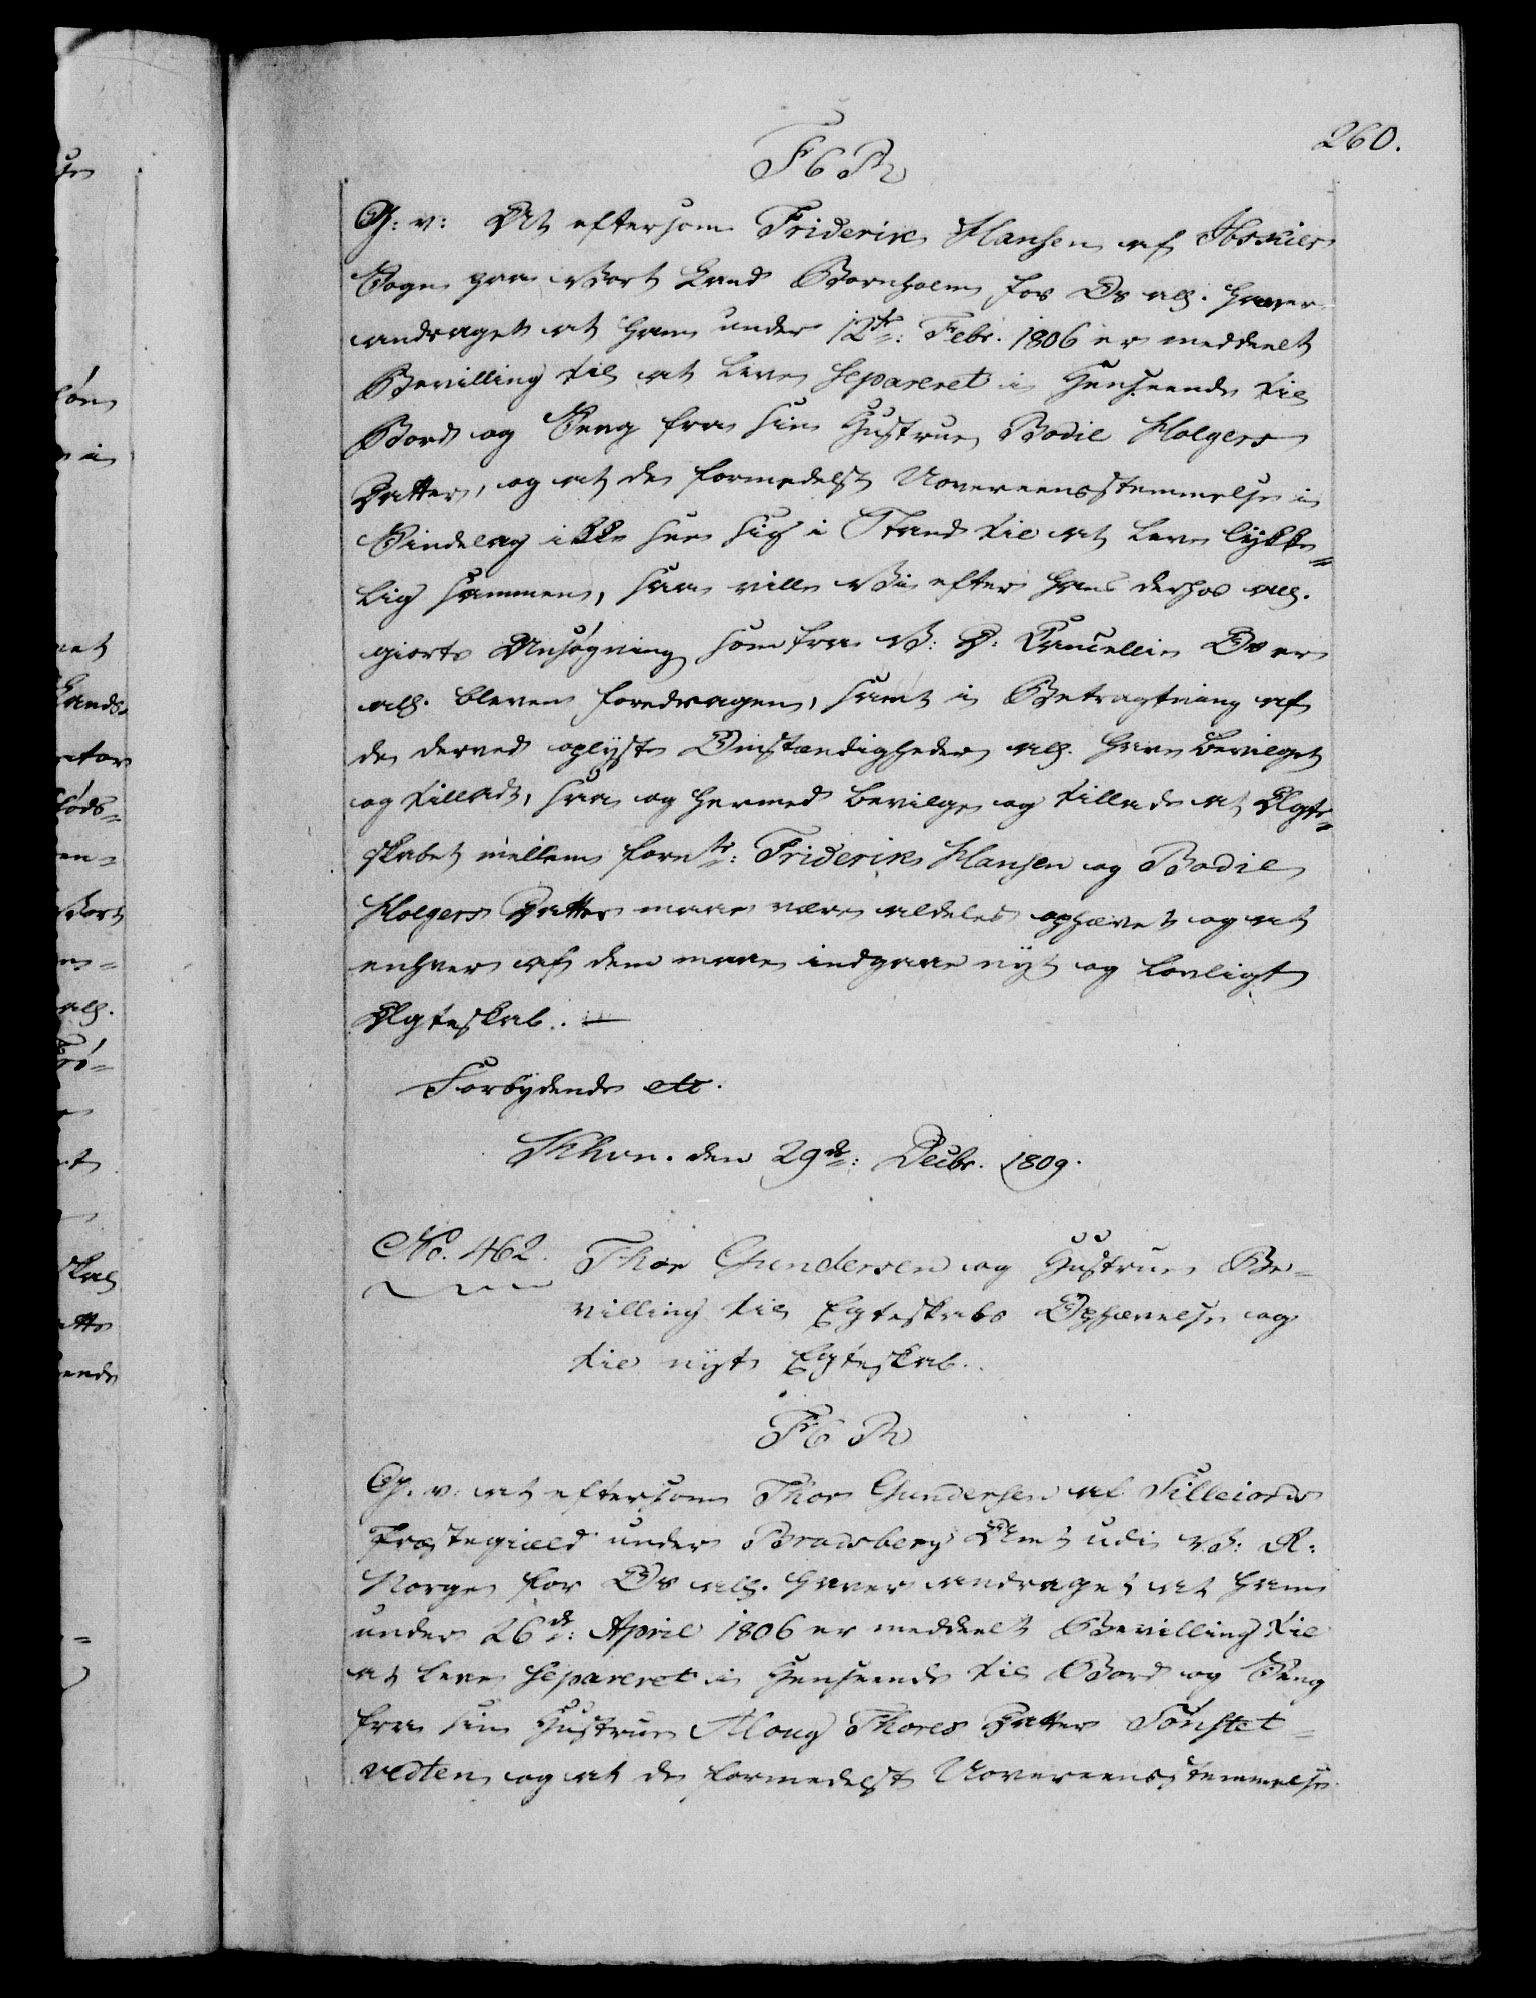 260.
F 6 R
G: v: At eftersom Friderik Hansen af Ibskier
Sogn paa Vort Land Bornholm for Os all. haver
andraget at ham under 12te: Febr. 1806 er meddeelt
Bevilling til at leve separeret i Henseende til
Bord og Seng fra sin Hustrue Bodil Holgers
Datter, og at de formedelst Uovereensstemmelse i
Sindelag ikke see sig i Stand til at leve lykke=
lig sammen, saa ville Vi efter hans derhos all.
giorte Ansøgning som fra V: D: Cancellie Os er
all. bleven foredragen, samt i Betragtning af
de derved oplyste Omstændigheder all. have bevilget
og tilladt, saa og hermed bevilge og tillade at Ægte=
skabet mellem forete: Friderik Hansen og Bodil
Holgers Datter maae være aldeles ophævet og at
enhver af dem maae indgaae nyt og lovligt
Ægteskab. —
Forbydende etc.
Khvn. den 29de: Decbr. 1809.
No. 462. Thor Gundersen og Hustrues Be=
villing til Egteskabs Ophævelse og
til nyt Egteskab.
F 6 R
G. v: at eftersom Thor Gundersen af Silleiords
Præstegield under Bradsberg Amt udi V: R:
Norge for Os all. haver andraget at ham
under 26de: April 1806 er meddeelt Bevilling til
at leve separeret i Henseende til Bord og Seng
fra sin Hustrue Aloug Thores Datter Sønstet=
vedten og at de formedelst Uovereensstemmelse